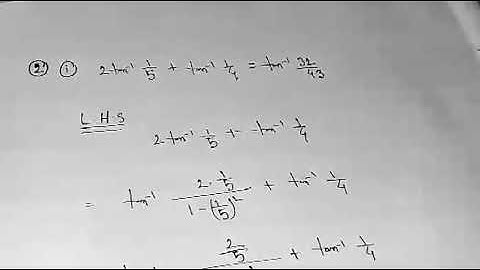 ② ⓘ 2 tan⁻¹ 1/5 + tan⁻¹ 1/4 = tan⁻¹ 32/43
L.H.S
2 tan⁻¹ 1/5 + tan⁻¹ 1/4
= tan⁻¹ (2·1/5)/(1-(1/5)²) + tan⁻¹ 1/4
2/5 + tan⁻¹ 1/4